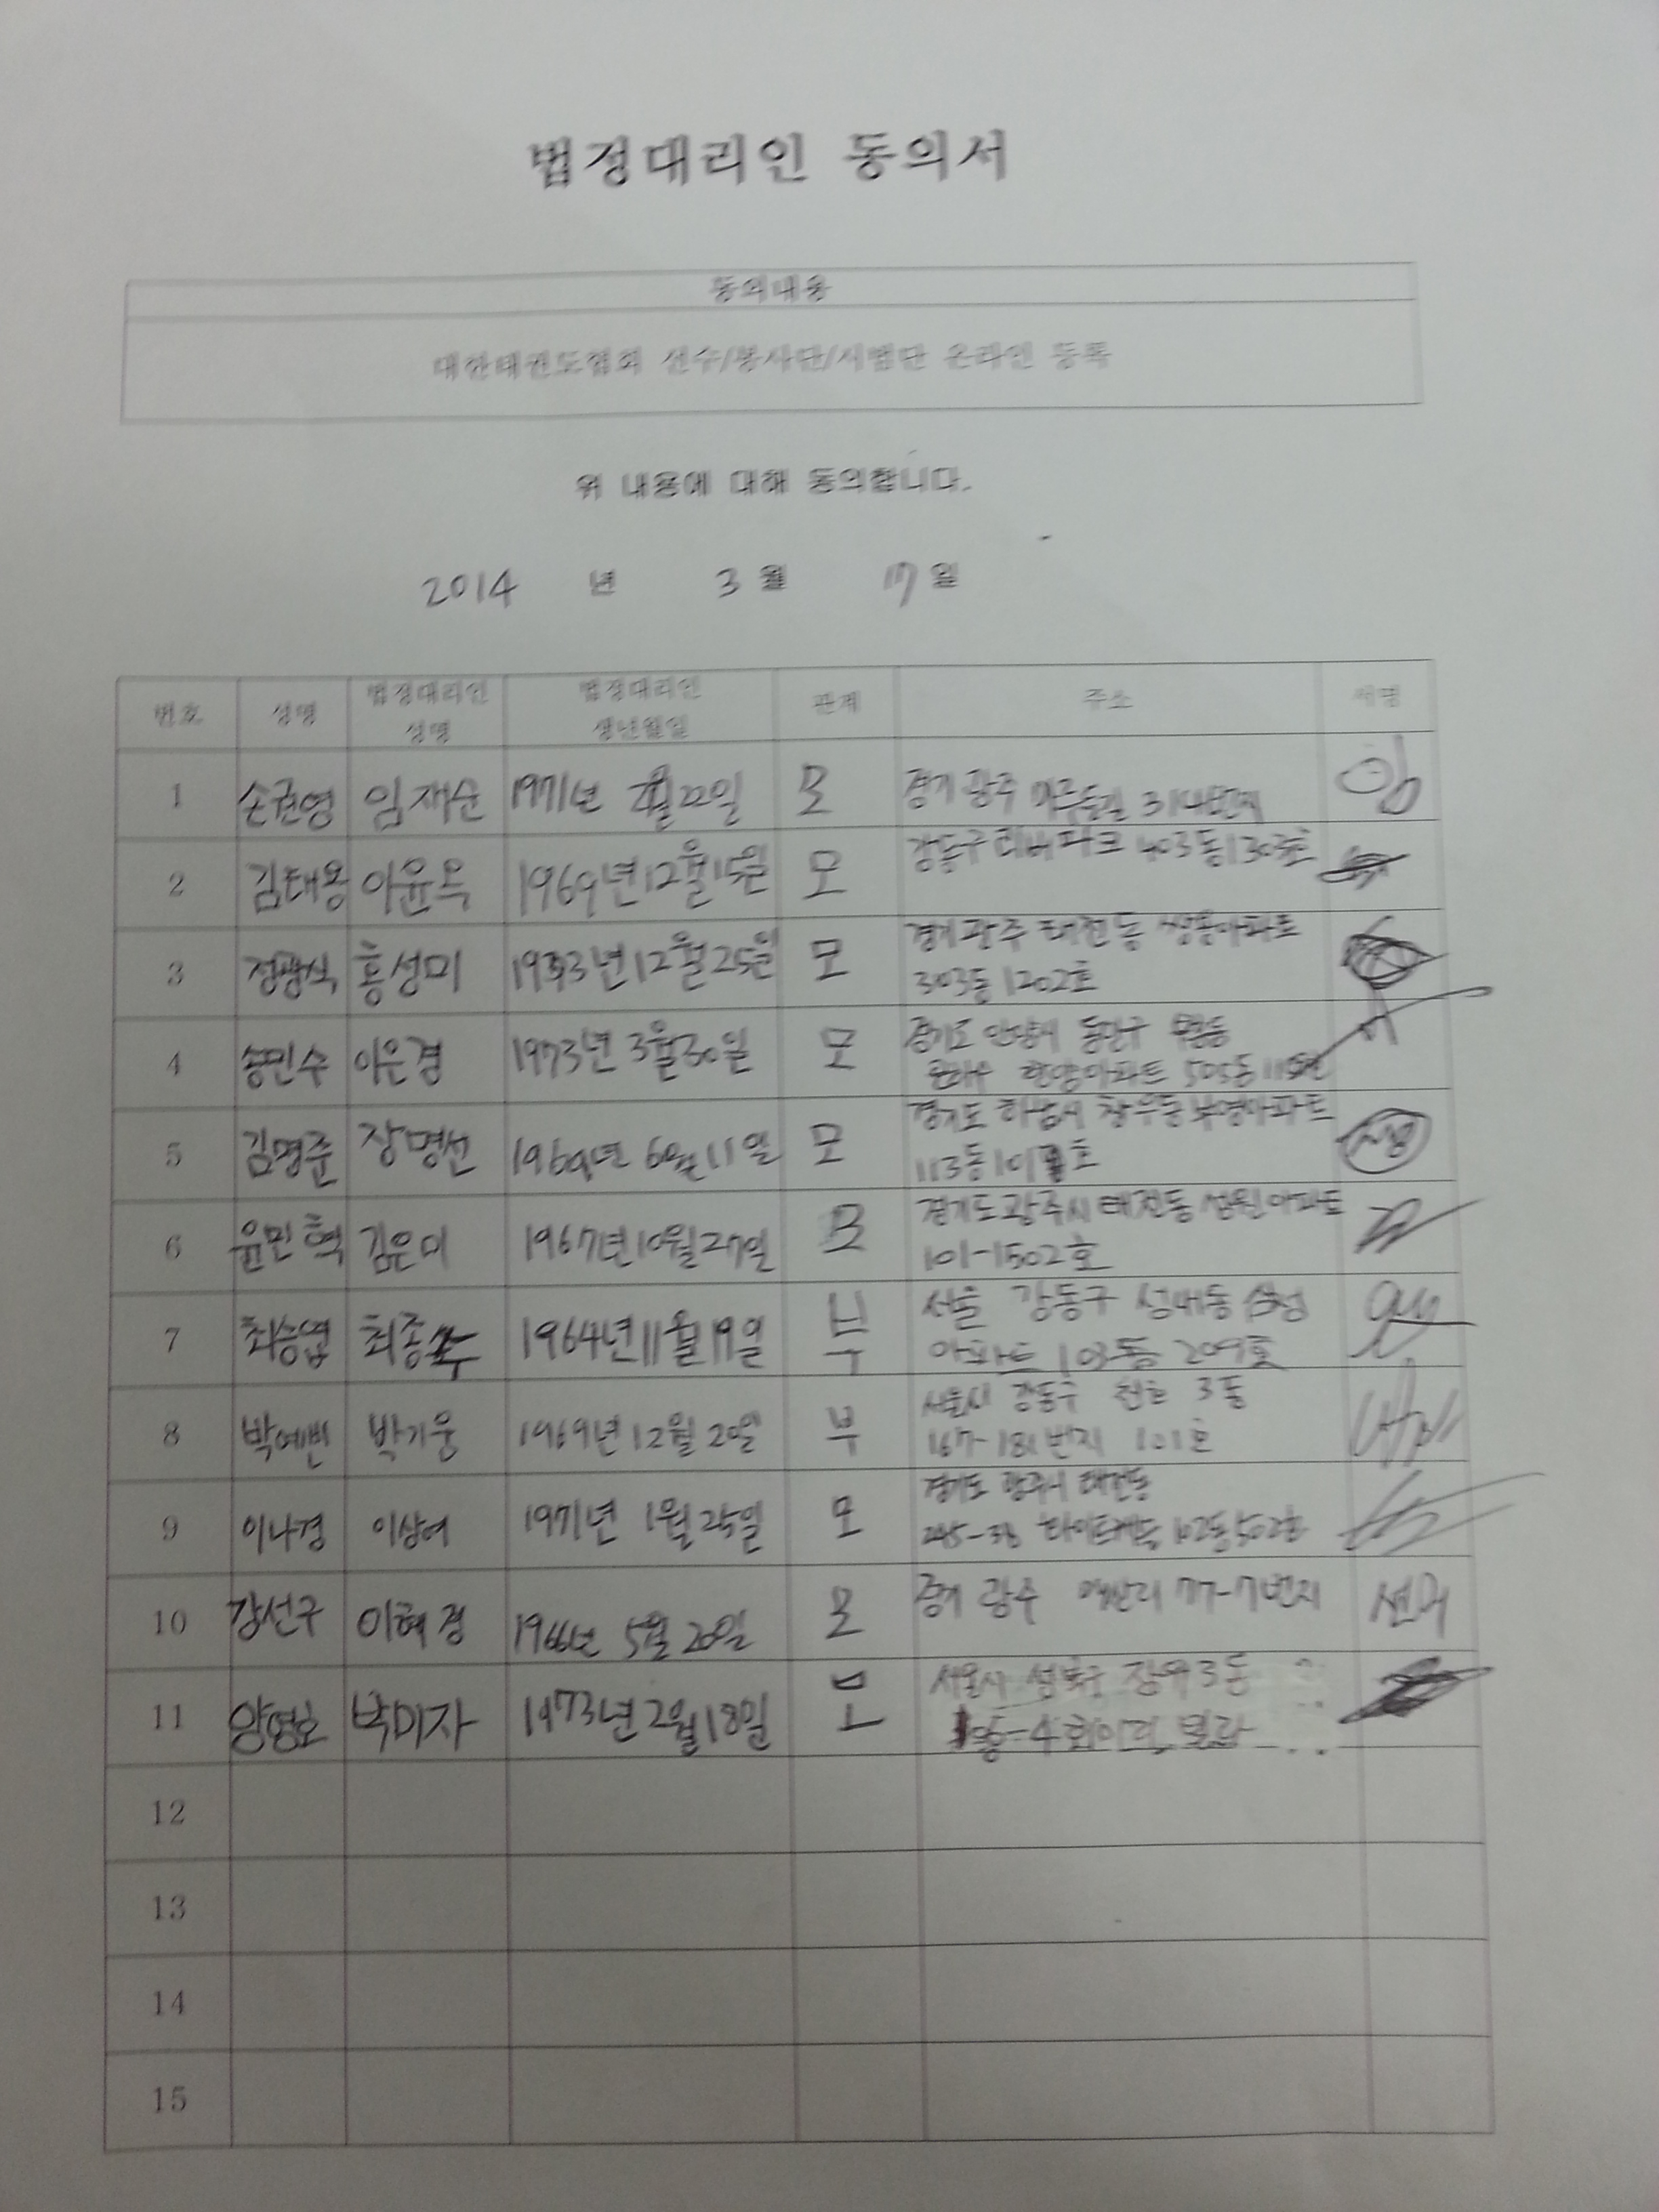 법정대리인 동의서
동의내용
대한태권도협회 선수/봉사단/시범단 온라인 등록
위 내용에 대해 동의합니다.
2014 년 3 월 17 일
번호 성명 법정대리인 성명 법정대리인 생년월일 관계 주소 서명
1 손권영 임재순 1971년 22일 모 경기 광주 314번지
2 김태용 이윤옥 1969년 12월 15일 모 강동구 리버파크 403동 1303호
3 정광식 홍성미 12월 25일 모 경기 광주 태전동 쌍용아파트
303동 1202호
4 송민수 이은경 1973년 3월 30일 모 경기도 안양시 동안구
한양아파트 505동
5 김명준 장명선 1969년 6월 11일 모 경기도 하남시 창우동 부영아파트
113동
6 윤민혁 김은미 1967년 10월 27일 모 경기도 광주시 태전동 성원아파트
101-1502호
7 최승엽 최종수 1964년 11월 19일 부 서울 강동구 성내동 삼성
아파트 103동 209호
8 박예빈 박기웅 1969년 12월 20일 부 서울시 강동구 천호 3동
167-181번지 101호
9 이나경 이상여 1971년 1월 25일 모 경기도 광주시 태전동
102동 502호
10 강선구 이혜경 1966년 5월 20일 모 경기 광주 매산리 77-7번지
11 양영호 박미자 1973년 2월 18일 모 서울시 성북구 장위3동
빌라
12
13
14
15